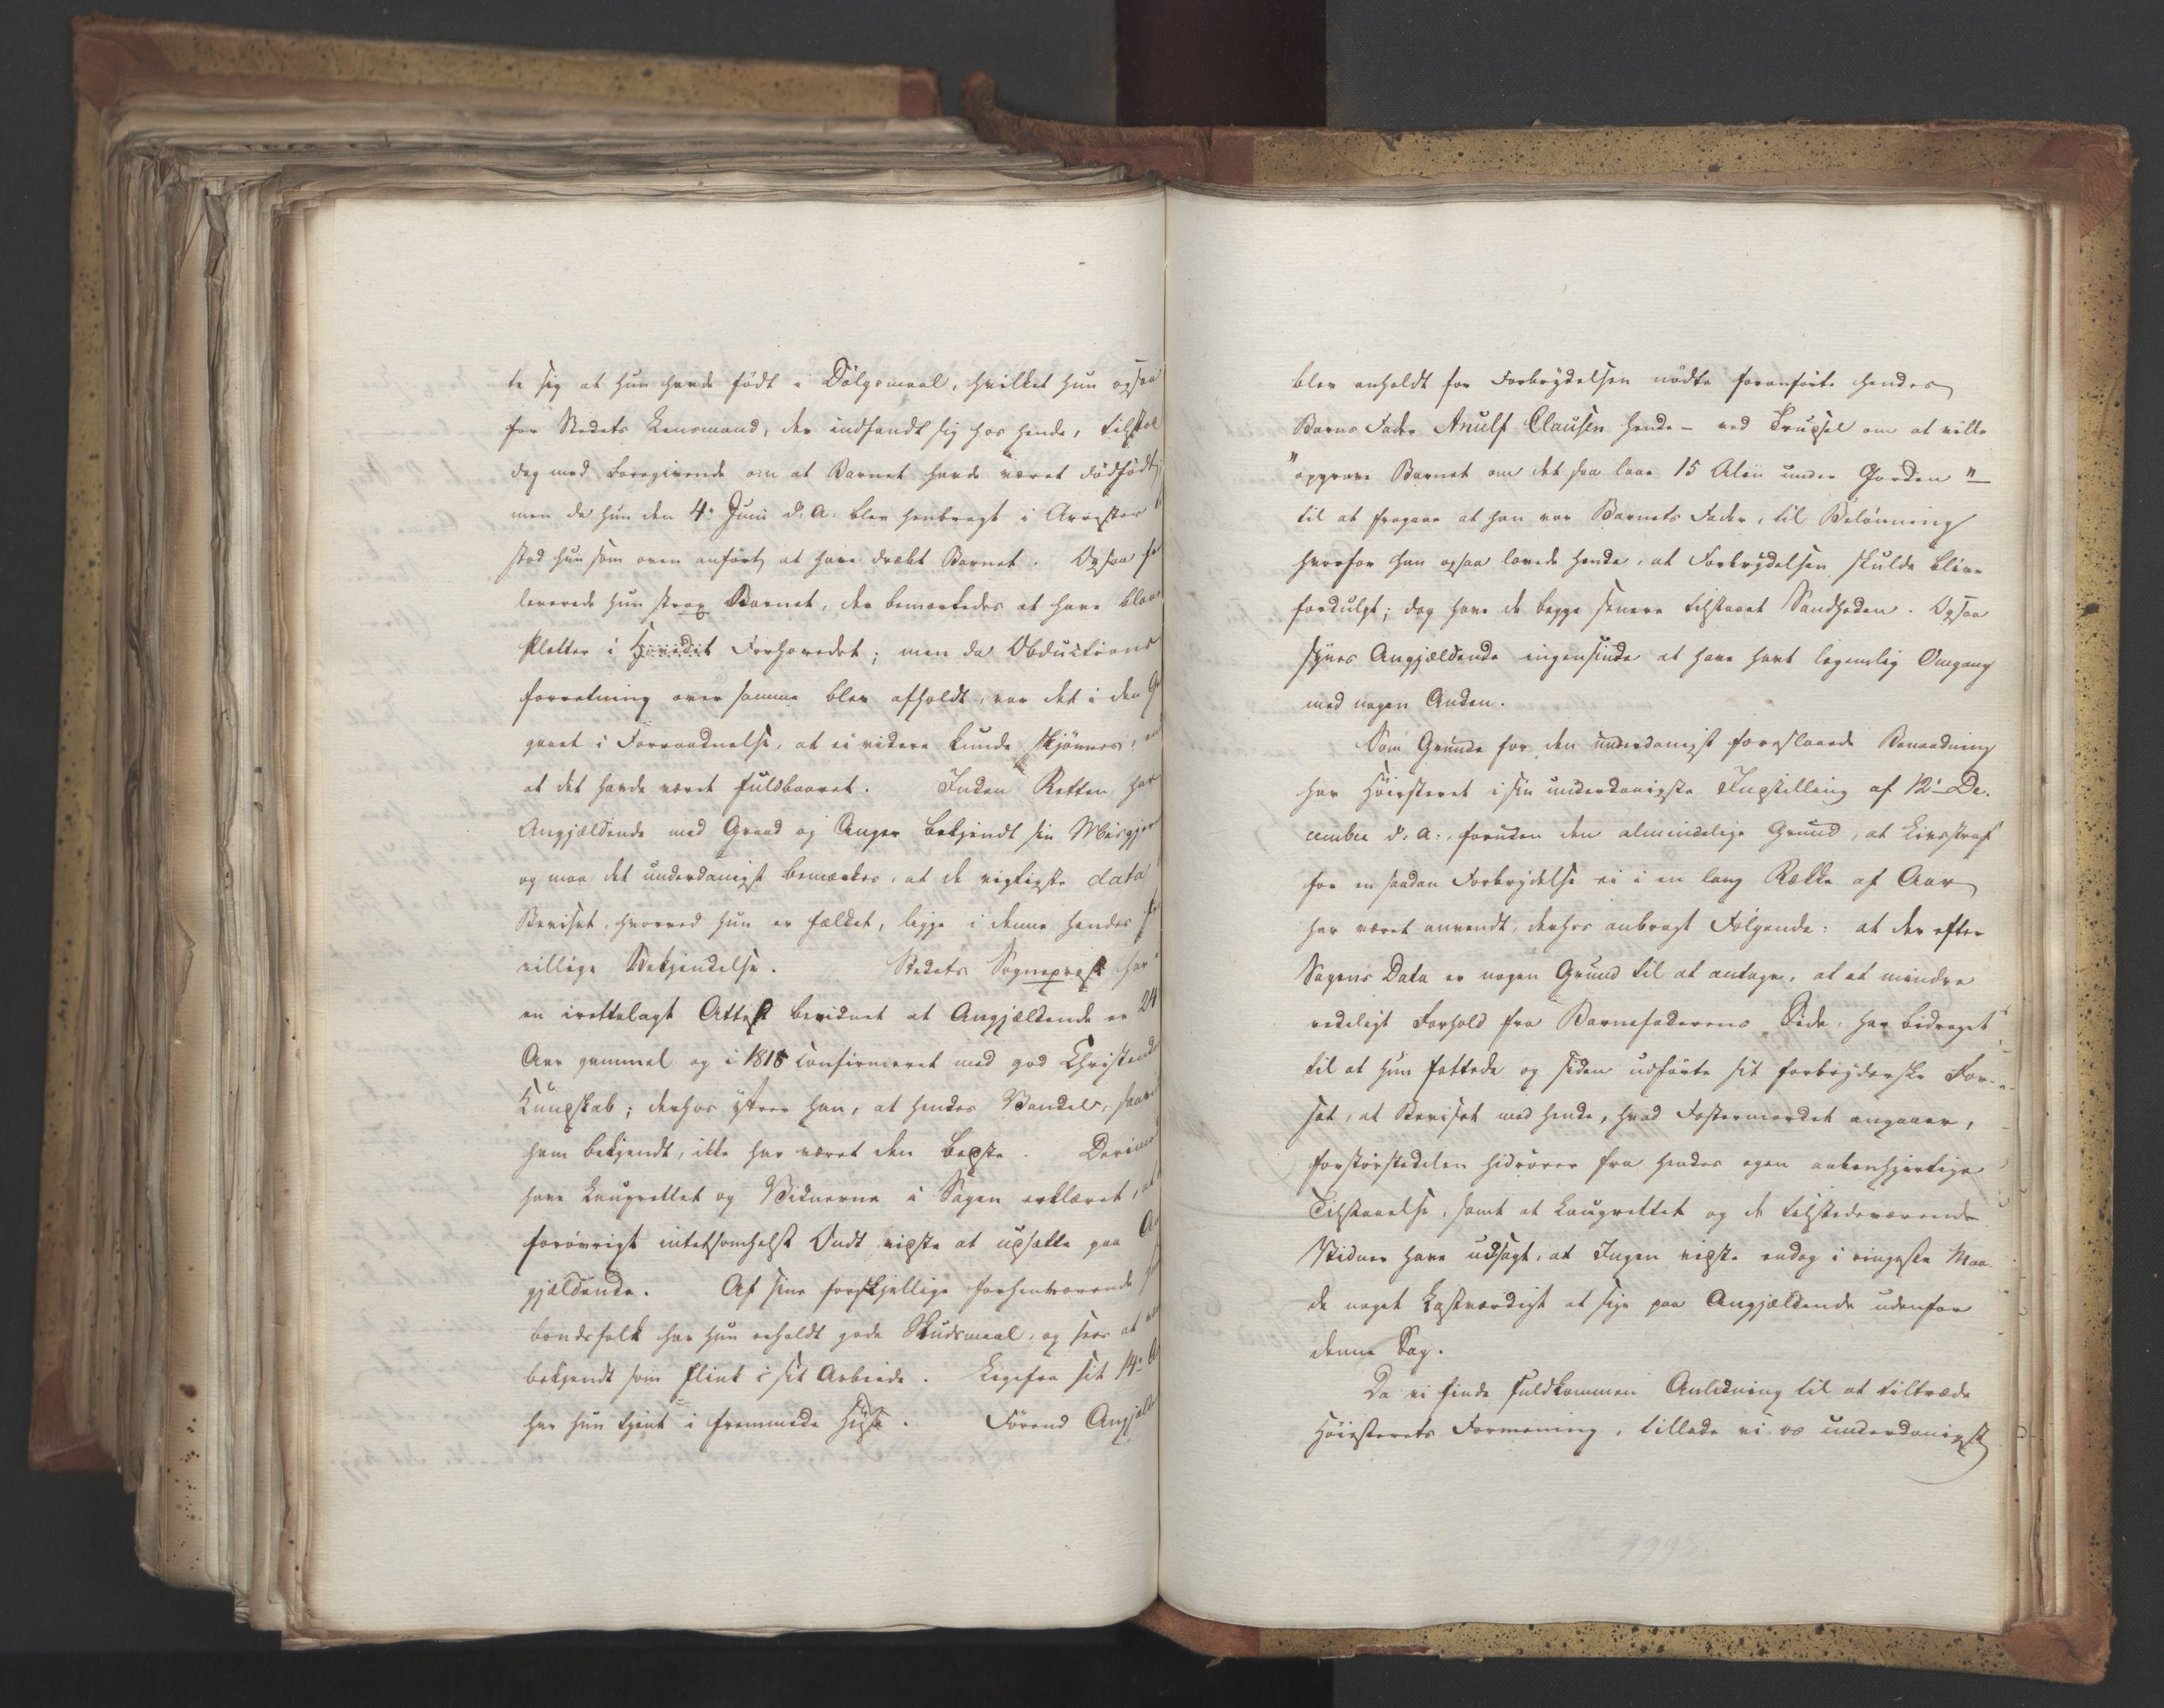 te sig at hun havde födt i Dölgsmaal, hvilket hun ogsaa
for Stedets Lensmand, der indfandt sig hos hende, tilstod
dog med Foregivende om at Barnet havde været dödfödt,
men da hun den 4de Juni d: A: blev henbragt i Arresten
stod hun som oven anfört, at have dræbt Barnet. Ogsaa
leverede hun strax Barnet, der bemærkedes at have blaae
Pletter i Forhovedet; men da Obductions
forretning over samme blev afholdt, var det i den
gaaet i Forraadnelse, at ei videre kunde skjönnes,
at det havde været fuldbaaret. Inden Retten har
Angjældende med Graad og Anger bekjendt sin Misgjer
og maa det underdanigst bemærkes, at de vigtigste data
Beviset, hvorved hun er fældet, ligge i denne hendes
villige Bekjendelse. Stedets Sogneprest har
en irettelagt Attest bevidnet at Angjældende er 24
Aar gammel og i 1818 confirmeret med god Christendoms
Kunskab; derhos yttrer han, at hendes Vandel, saavidt
ham bekjendt, ikke har været den beste. Derimod
have Laugrettet og Vidnerne i Sagen erklæret, at
forövrigt intetsomhelst Ondt vidste at udsætte paa An
gjældende. Af sine forskjellige forhenværende
bondsfolk har hun erholdt gode Skudsmaal, og sees at
bekjendt som flink i sit Arbeide. Ligefra sit 14de
har hun tjent i fremmede Huse. Förend Angjælde
blev anholdt for Forbrydelsen nödte foranförte hendes
Barns Fader Anulf Clausen hende – ved Trudsel om at ville
"opgrave Barnet om det saa laae 15 Alen under Jorden" –
til at fragaae at han var Barnets Fader, til Belönning
hvorfor han ogsaa lovede hende, at Forbrydelsen skulde blive
fordulgt; dog have de begge senere tilstaaet Sandheden. Ogsaa
synes Angjældende ingensinde at have havt legemlig Omgang
med nogen Anden.
Som Grunde for den underdanigst foreslaaede Benaadning
har Höiesteret i sin underdanigste Indstilling af 12te De-
cember d: A:, foruden den almindelige Grund, at Livsstraf
for en saadan Forbrydelse ei i en lang Række af Aar
har været anvendt, derhos anbragt Fölgende: at der efter
Sagens Data er nogen Grund til at antage, at et mindre
redeligt Forhold fra Barnefaderens Side, har bidraget
til at hun fattede og siden udförte sit forbryderske For-
sæt, at Beviset mod hende, hvad Fostermordet angaaer,
forstörstedelen hidrörer fra hendes egen aabenhjertige
Tilstaaelse, samt at Laugrettet og de tilstedeværende
Vidner have udsagt, at Ingen vidste endog i ringeste Maa-
de noget Lastværdigt at sige paa Angjældende udenfor
denne Sag.
Da vi finde fuldkommen Anledning til at tiltræde
Höiesterets Formening, tillade vi os underdanigst